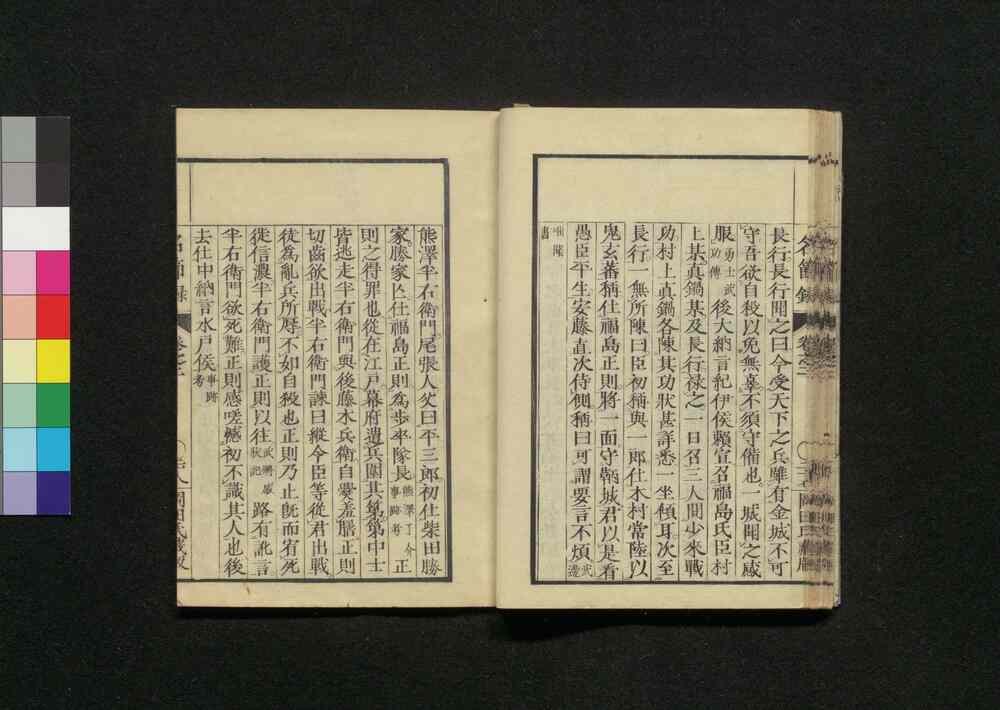 長行長行聞之曰今受天下之兵雖有金城不可
守吾欲自殺以免無辜不須守備也一城聞之感
服勇士武功傳後大納言紀伊侯賴宣召福島氏臣村
上某真鍋某及長行祿之一日召三人問少來戰
功村上真鍋各陳其功狀甚詳悉一坐傾耳次至
長行一無所陳曰臣初稱與一郎仕木村常陸以
鬼玄蕃稱仕福島正則將一面守鞆城君以是看
愚臣平生安藤直次侍側稱曰可謂要言不煩武邊
咄聞書
熊澤半右衛門尾張人父曰平三郎初仕柴田勝
家勝家亡仕福島正則為步卒隊長熊澤了介事跡考正
則之得罪也從在江戶幕府遣兵圍其第第中士
皆逃走半右衛門與後藤木兵衛自爨羞膳正則
切齒欲出戰半右衛門諫曰縱令臣等從君出戰
徒為亂兵所辱不如自殺也正則乃止既而宥死
徙信濃半右衛門護正則以往武功雜記路有訛言
半右衛門欲死難正則感嗟憾初不識其人也後
去仕中納言水戶侯事跡考
名節錄
卷之二
岡田氏藏版